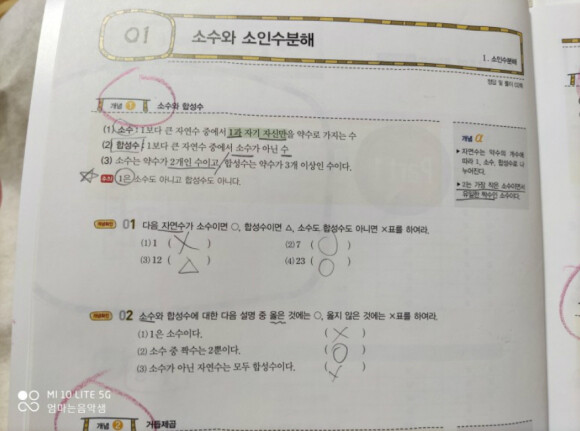 01 소수와 소인수분해
1. 소인수분해
정답 및 풀이 02쪽
개념 1 소수와 합성수
(1) 소수 : 1보다 큰 자연수 중에서 1과 자기 자신만을 약수로 가지는 수
(2) 합성수 : 1보다 큰 자연수 중에서 소수가 아닌 수
(3) 소수는 약수가 2개인 수이고, 합성수는 약수가 3개 이상인 수이다.
주의 1은 소수도 아니고 합성수도 아니다.
개념 α
▶ 자연수는 약수의 개수에
따라 1, 소수, 합성수로 나
누어진다.
▶ 2는 가장 작은 소수이면서
유일한 짝수인 소수이다.
개념확인 01 다음 자연수가 소수이면 ○, 합성수이면 △, 소수도 합성수도 아니면 ×표를 하여라.
(1) 1 ( × ) (2) 7 ( ○ )
(3) 12 ( △ ) (4) 23 ( ○ )
개념확인 02 소수와 합성수에 대한 다음 설명 중 옳은 것에는 ○, 옳지 않은 것에는 ×표를 하여라.
(1) 1은 소수이다. ( × )
(2) 소수 중 짝수는 2뿐이다. ( ○ )
(3) 소수가 아닌 자연수는 모두 합성수이다. ( × )
개념 2 거듭제곱
MI 10 LITE 5G
엄마는음악샘